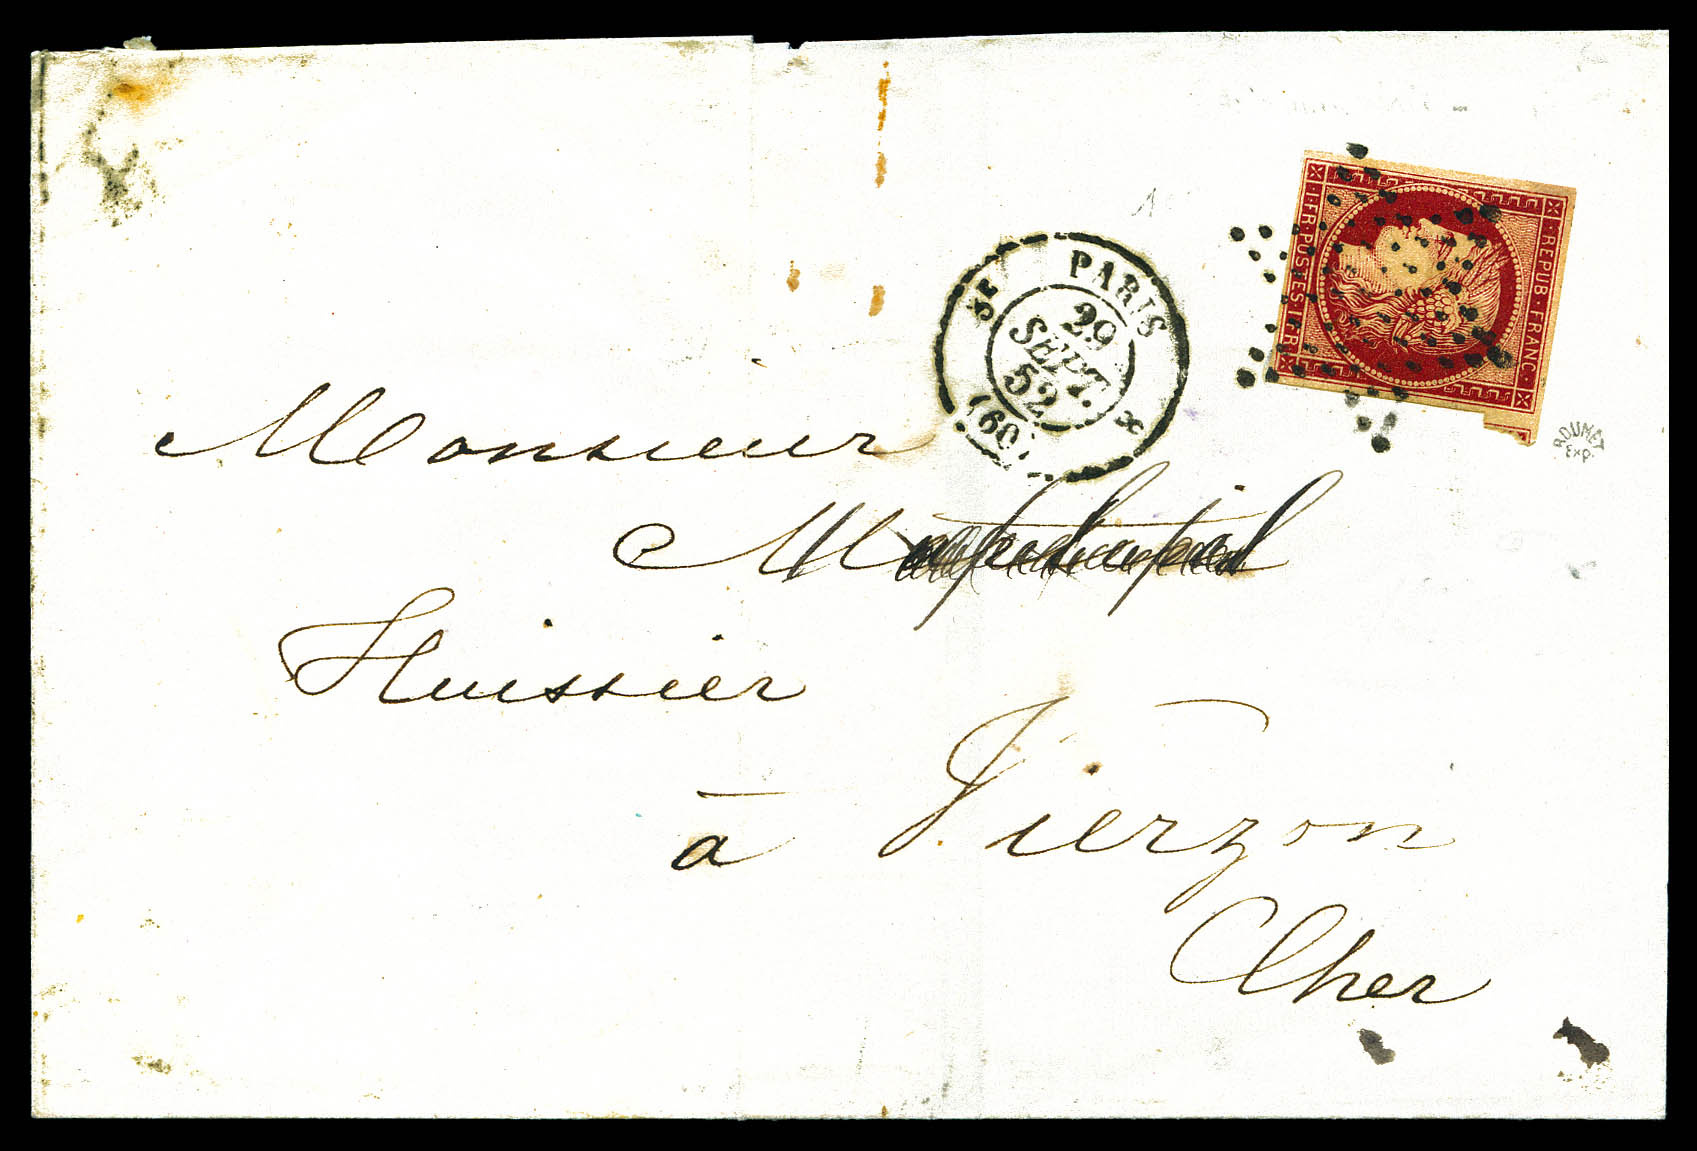 3E PARIS
29
SEPT.
52
(60)
REPUB. FRANC.
1.FR.POSTES.1.FR.
ROUMET
Exp.
Monsieur
Huissier
à Vierzon
Cher